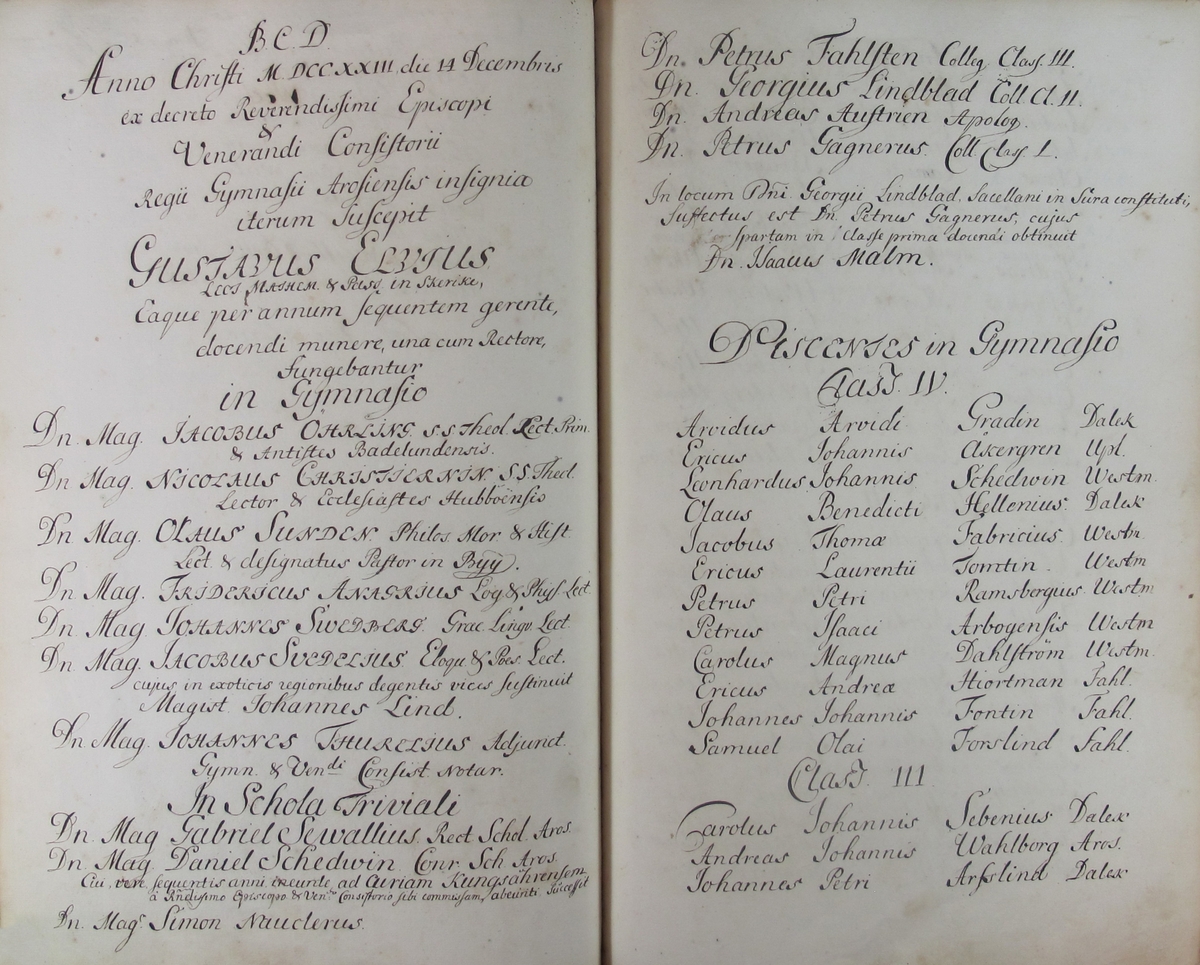 B. C. D.
Anno Christi M.DCCXXIII, die 14 Decembris
ex decreto Reverendissimi Episcopi
&
Venerandi Consistorii
Regii Gymnasii Arosiensis insignia
iterum suscepit
GUSTAVUS ELVIUS
Lect. MATHEM. & Past. in Skerike,
Eaque per annum sequentem gerente,
docendi munere, una cum Rectore,
fungebantur
in Gymnasio
Dn. Mag. JACOBUS OHRLING. S.S. Theol. Lect. Prim.
& Antistes Badelundensis.
Dn. Mag. NICOLAUS CHRISTIERNIN. S.S. Theol.
Lector & Ecclesiastes Hubboënsis
Dn. Mag. OLAUS SUNDEN Philos. Mor. & Hist.
Lect. & designatus Pastor in Byÿ.
Dn. Mag. FRIDERICUS ANAGRIUS Log. & Phys. Lect.
Dn. Mag. JOHANNES SWEDBERG. Græc. Lingv. Lect.
Dn. Mag. JACOBUS SVEDELIUS. Eloqu. & Poes. Lect.
cujus in exoticis regionibus degentis vices sustinuit
Magist. Johannes Lind.
Dn. Mag. JOHANNES THURELIUS Adjunct.
Gymn. & Ven.di Consist. Notar.
In Schola Triviali
Dn. Mag Gabriel Sewallius. Rect. Schol. Aros.
Dn. Mag Daniel Schedwin Conr. Sch. Aros.
Cui, vere sequentis anni ineunte, ad Curiam Kungsåhrensem
à Rndissimo Episcopo & Ven. Consistorio sibi commissam, abeunti successit
Dn. Mag. Simon Nauclerus.
Dn. Petrus Fahlsten Colleg. Class. III.
Dn. Georgius Lindblad Coll. Cl. II.
Dn. Andreas Austrien Apolog.
Dn. Petrus Gagnerus. Coll. Class. I.
In locum Dni. Georgii Lindblad, Sacellani in Sura constituti,
suffectus est Dn. Petrus Gagnerus, cujus
spartam in Classe prima docendi obtinuit
Dn. Isaacus Malm.
DISCENTES in Gymnasio
Class. IV.
Arvidus Arvidi Gradin Dalek
Ericus Johannis Åkergren Upl.
Leonhardus Johannis Schedwin Westm.
Olaus Benedicti Hellenius. Dalek
Jacobus Thomæ Fabricius. Westm.
Ericus Laurentii Tomtin. Westm
Petrus Petri Ramsbergius. Westm
Petrus Isaaci Arbogensis Westm
Carolus Magnus Dahlström Westm.
Ericus Andreæ Hiortman Fahl.
Johannes Johannis Fontin Fahl.
Samuel Olai Forslind Fahl.
Class. III
Carolus Johannis Sebenius Dalek
Andreas Johannis Wahlborg Aros.
Johannes Petri Arfslind Dalek